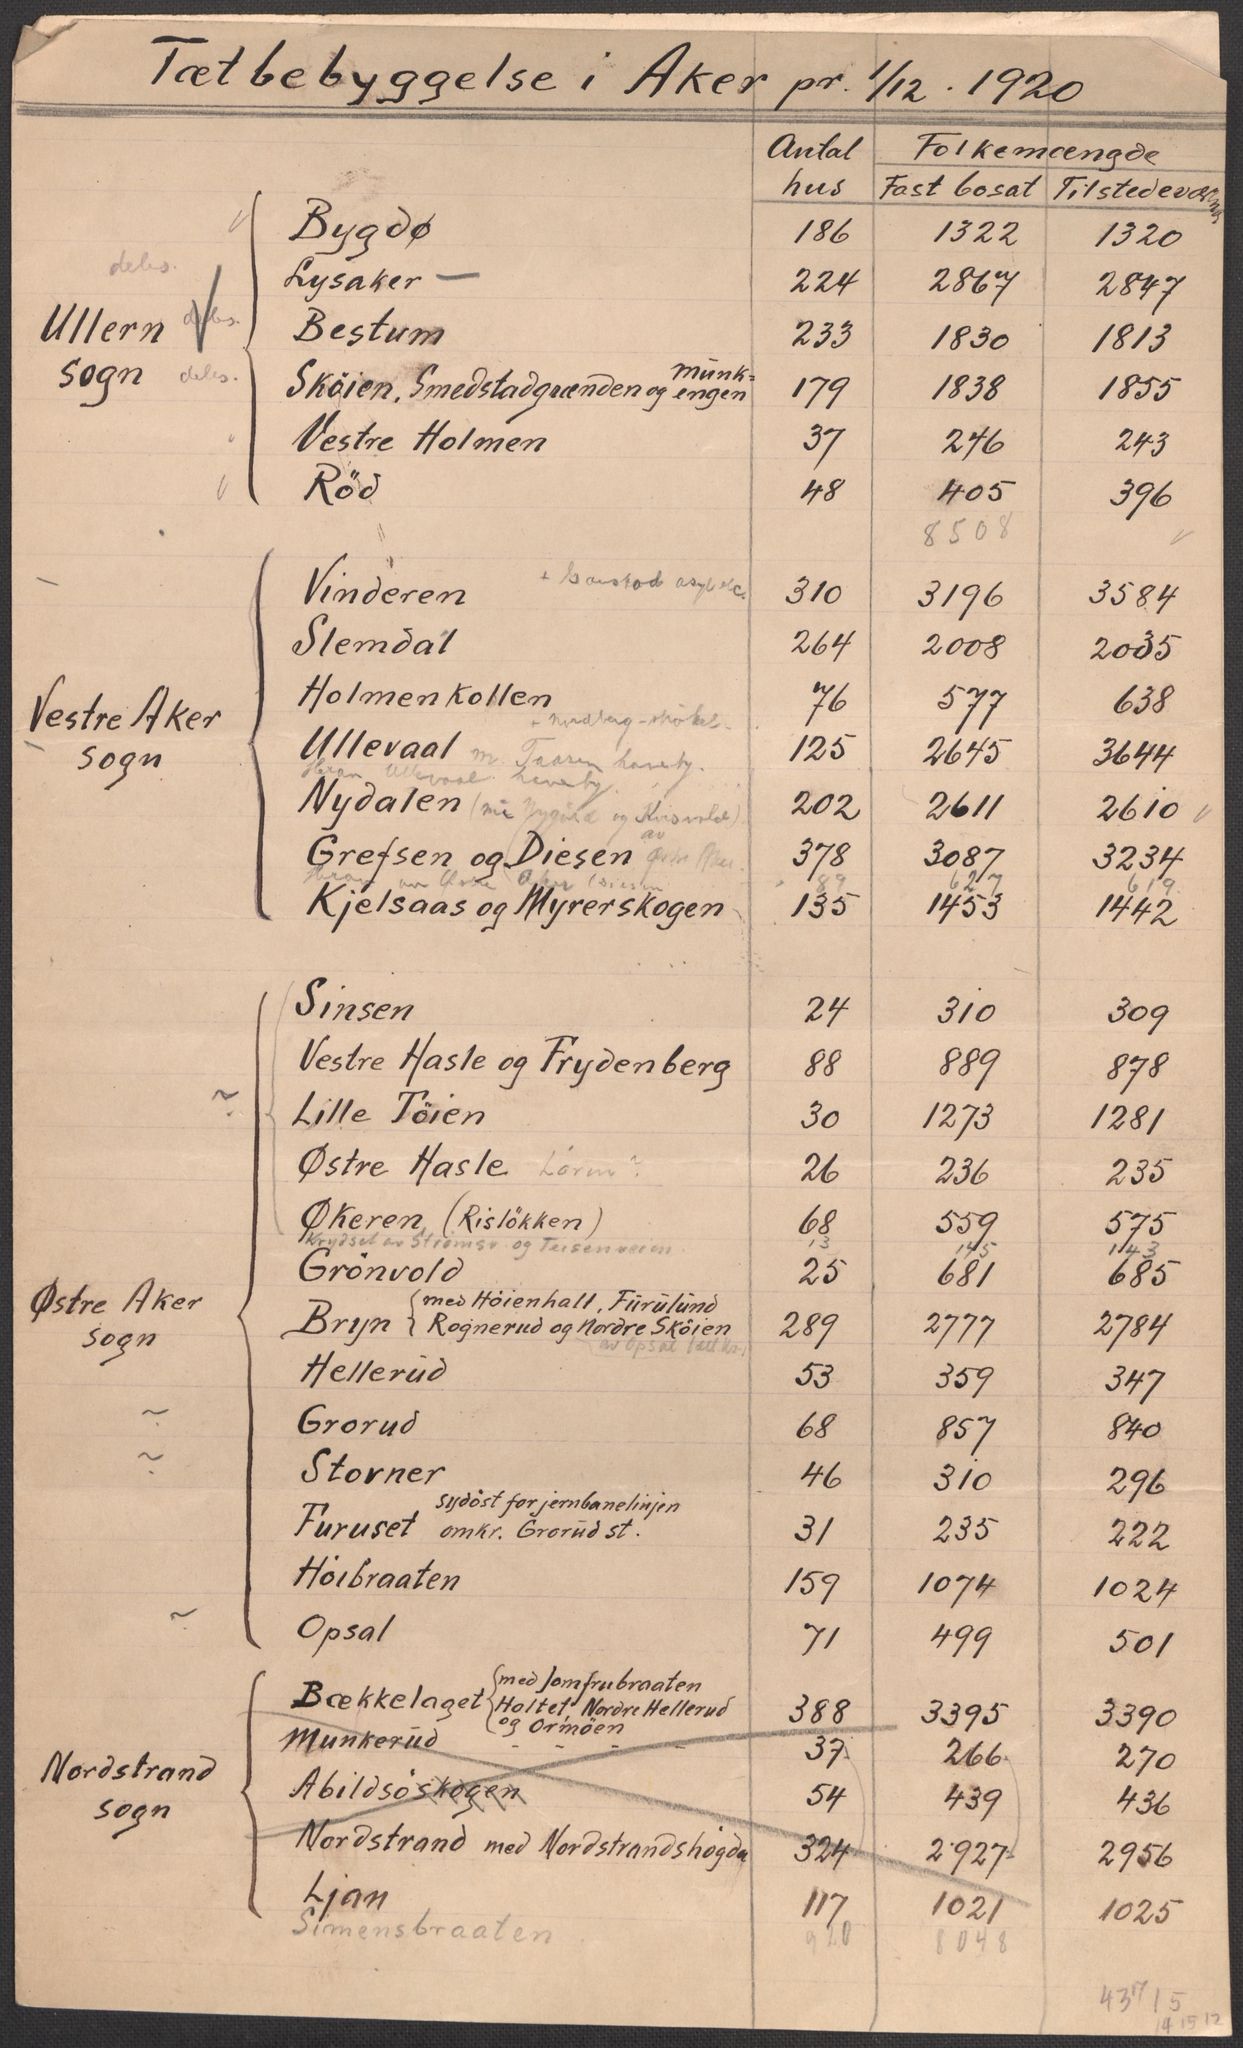 Tætbebyggelse i Aker pr. 1/12. 1920
Antal hus | Folkemængde
Fast bosat | Tilstedeværende
Ullern sogn
Bygdø 186 1322 1320
deles.
Lysaker — 224 2867 2847
deles.
Bestum 233 1830 1813
deles.
Sköien, Smedstadgrænden og Munk=engen 179 1838 1855
Vestre Holmen 37 246 243
Röd 48 405 396
8508
Vestre Aker sogn
Vinderen + Gaustad asyl etc. 310 3196 3584
Slemdal 264 2008 2035
Holmenkollen 76 577 638
+ Nordberg
Ullevaal m. Taasen haveby. 125 2645 3644
Herav Ullevaal haveby.
Nydalen 202 2611 2610
Grefsen og Diesen av Østre Aker 378 3087 3234
Herav av Østre Aker (Diesen 89 627 619
Kjelsaas og Myrerskogen 135 1453 1442
Østre Aker sogn
Sinsen 24 310 309
Vestre Hasle og Frydenberg 88 889 878
Lille Töien 30 1273 1281
Østre Hasle Lören? 26 236 235
Økeren, (Rislökken) 68 559 575
Krydset av Strömsv. og Teisenveien 13 145 143
Grönvold 25 681 685
Bryn { med Höienhall, Furulund
Rognerud og Nordre Sköien 289 2777 2784
av Opsal
Hellerud 53 359 347
Grorud 68 857 840
Stovner 46 310 296
Furuset sydöst for jernbanelinjen
omkr. Grorud st. 31 235 222
Höibraaten 159 1074 1024
Opsal 71 499 501
Nordstrand sogn
Bækkelaget { med Jomfrubraaten
Holtet, Nordre Hellerud
og Ormöen 388 3395 3390
Munkerud - - - - 37 266 270
Abildsöskogen 54 439 436
Nordstrand med Nordstrandshögda 324 2927 2956
Ljan 117 1021 1025
Simensbraaten 920 8048
43715
14 15 12